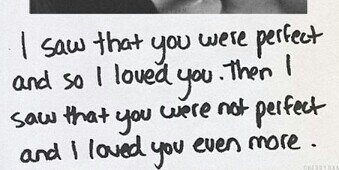 I saw that you were perfect
and so I loved you. Then I
saw that you were not perfect
and I loved you even more.